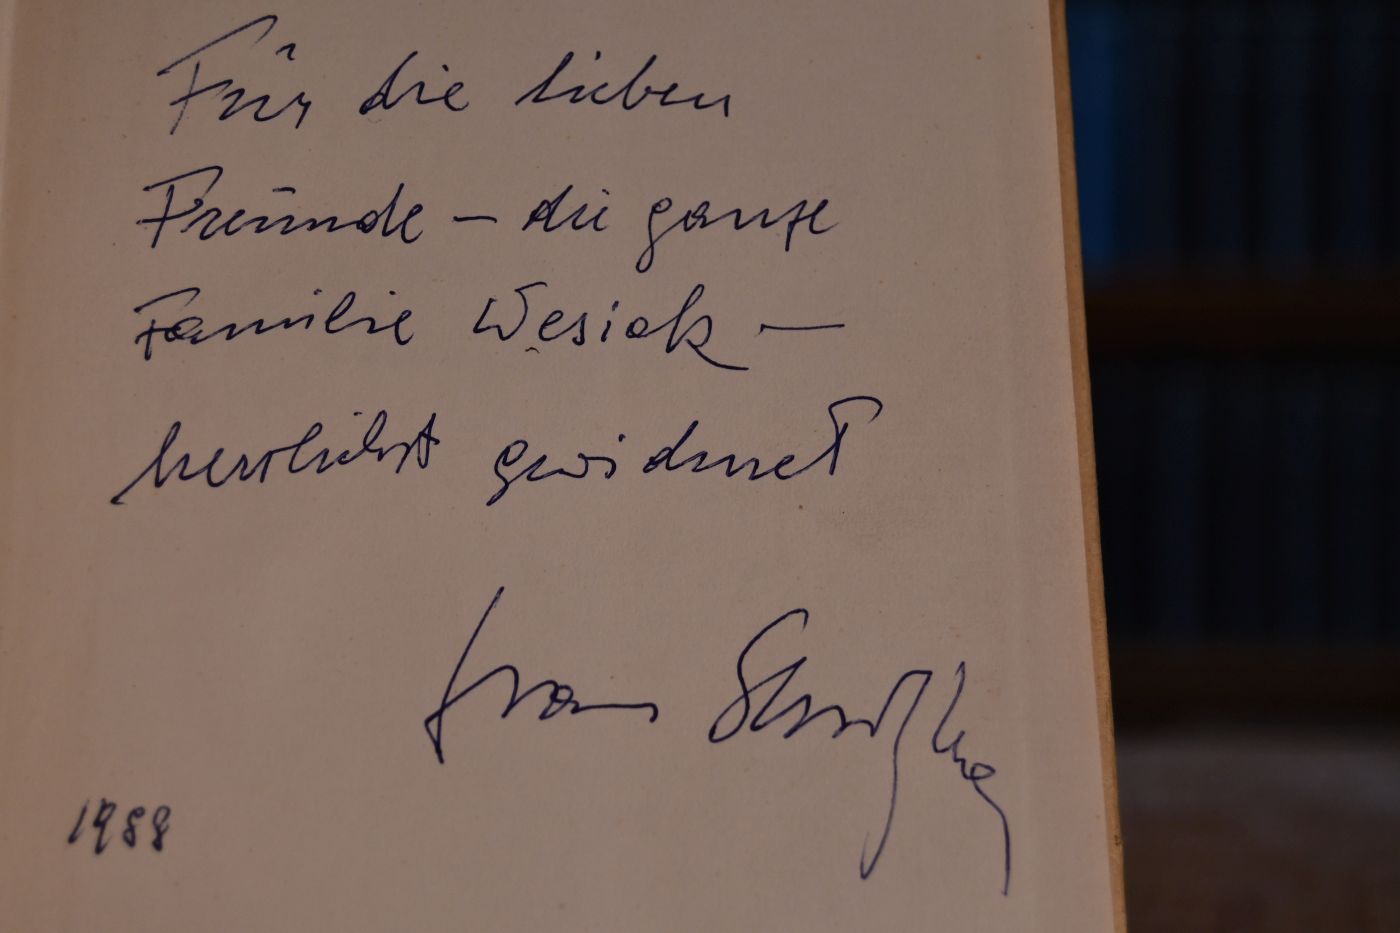 Für die lieben
Freunde – die ganze
Familie Wesiak –
herzlichst gewidmet
Franz
1988